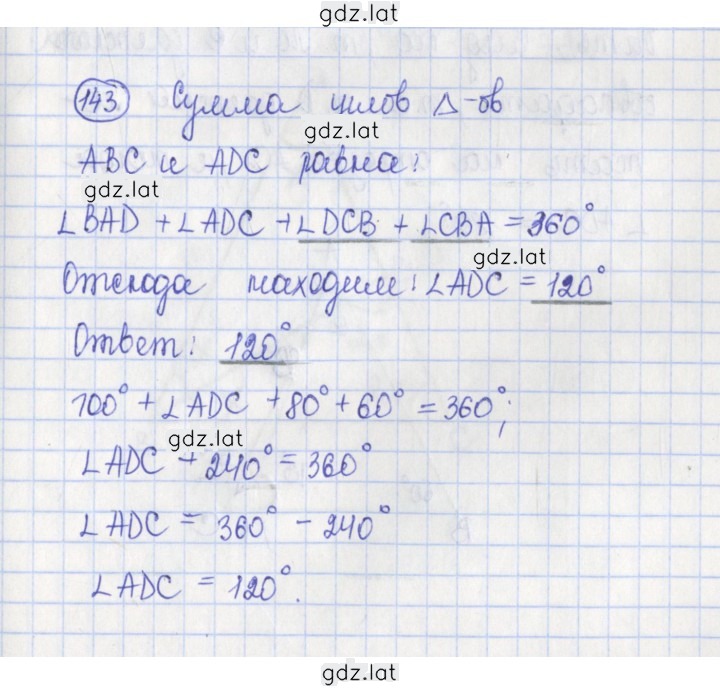 gdz.lat
143 Сумма углов Δ-ов
gdz.lat
ABC и ADC равна:
gdz.lat
∠BAD + ∠ADC + ∠DCB + ∠CBA = 360°
gdz.lat
Отсюда находим: ∠ADC = 120°
Ответ: 120°
100° + ∠ADC + 80° + 60° = 360°;
gdz.lat
∠ADC + 240° = 360°
∠ADC = 360° - 240°
∠ADC = 120°.
gdz.lat